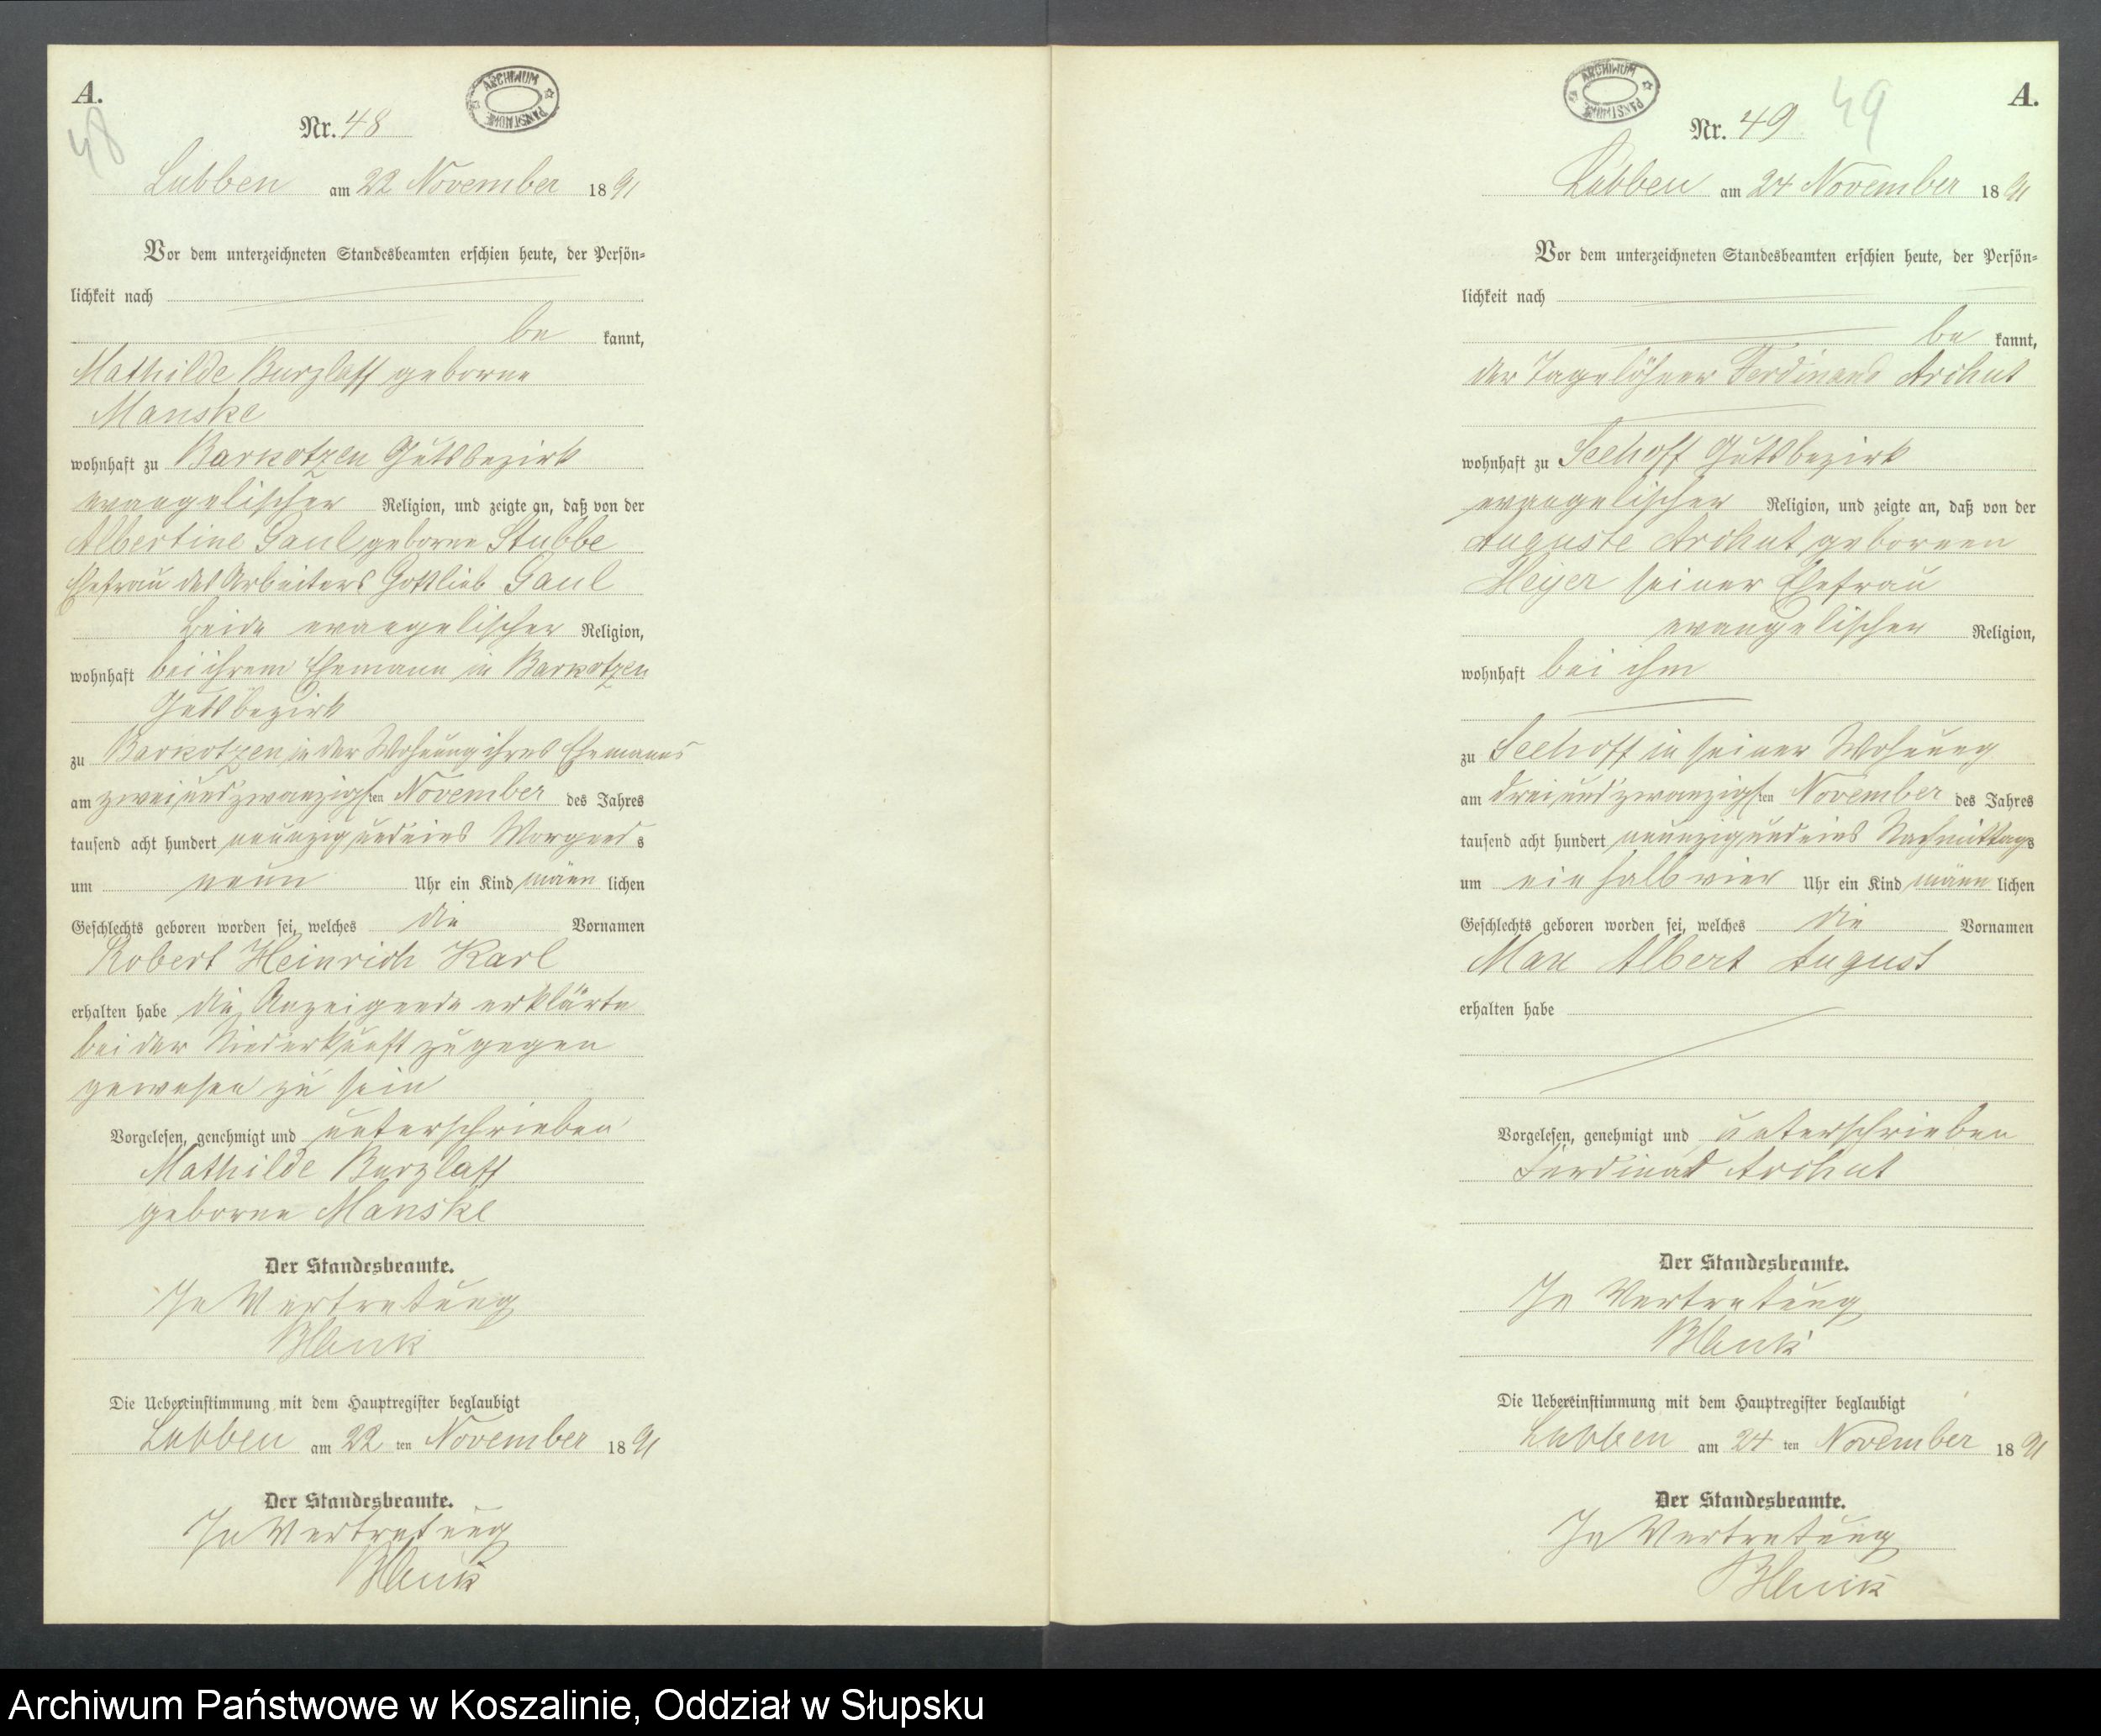 A.
48
ARCHIWUM PAŃSTWOWE
Nr. 48
Lubben am 22 November 1891
Vor dem unterzeichneten Standesbeamten erschien heute, der Persön-
lichkeit nach
be kannt,
Mathilde Burzlaff geborne
Manske
wohnhaft zu Barkotzen Gutsbezirk
evangelischer Religion, und zeigte an, daß von der
Albertine Gaul geborne Stubbe
Ehefrau des Arbeiters Gottlieb Gaul
beide evangelischer Religion,
wohnhaft bei ihrem Ehemann in Barkotzen
Gutsbezirk
zu Barkotzen in der Wohnung ihres Ehemanns
am zweiundzwanzigsten November des Jahres
tausend acht hundert neunzig und eins Morgends
um neun Uhr ein Kind männ lichen
Geschlechts geboren worden sei, welches die Vornamen
Robert Heinrich Karl
erhalten habe die Anzeigende erklärte
bei der Niederkunft zugegen
gewesen zu sein
Vorgelesen, genehmigt und unterschrieben
Mathilde Burzlaff
geborne Manske
Der Standesbeamte.
In Vertretung
Die Uebereinstimmung mit dem Hauptregister beglaubigt
Lubben am 22 ten November 1891
Der Standesbeamte.
In Vertretung
A.
49
ARCHIWUM PAŃSTWOWE
Nr. 49
Lubben am 24 November 1891
Vor dem unterzeichneten Standesbeamten erschien heute, der Persön-
lichkeit nach
be kannt,
der Tagelöhner Ferdinand Archut
wohnhaft zu Seehoff Gutsbezirk
evangelischer Religion, und zeigte an, daß von der
Auguste Archut gebornen
Heyer seiner Ehefrau
evangelischer Religion,
wohnhaft bei ihm
zu Seehoff in seiner Wohnung
am dreiundzwanzigsten November des Jahres
tausend acht hundert neunzig und eins Nachmittags
um ein halb vier Uhr ein Kind männ lichen
Geschlechts geboren worden sei, welches die Vornamen
Max Albert August
erhalten habe
Vorgelesen, genehmigt und unterschrieben
Ferdinad Archut
Der Standesbeamte.
In Vertretung
Die Uebereinstimmung mit dem Hauptregister beglaubigt
Lubben am 24 ten November 1891
Der Standesbeamte.
In Vertretung
Archiwum Państwowe w Koszalinie, Oddział w Słupsku